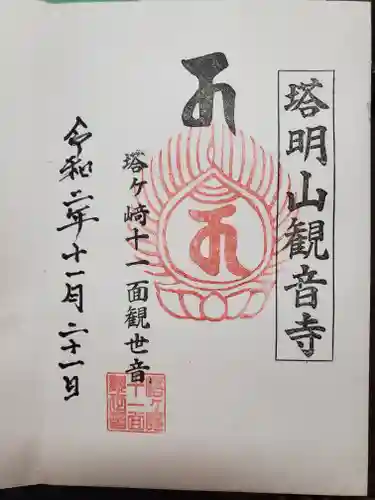 塔明山観音寺
塔ヶ崎十一面観世音
令和二年十一月二十一日